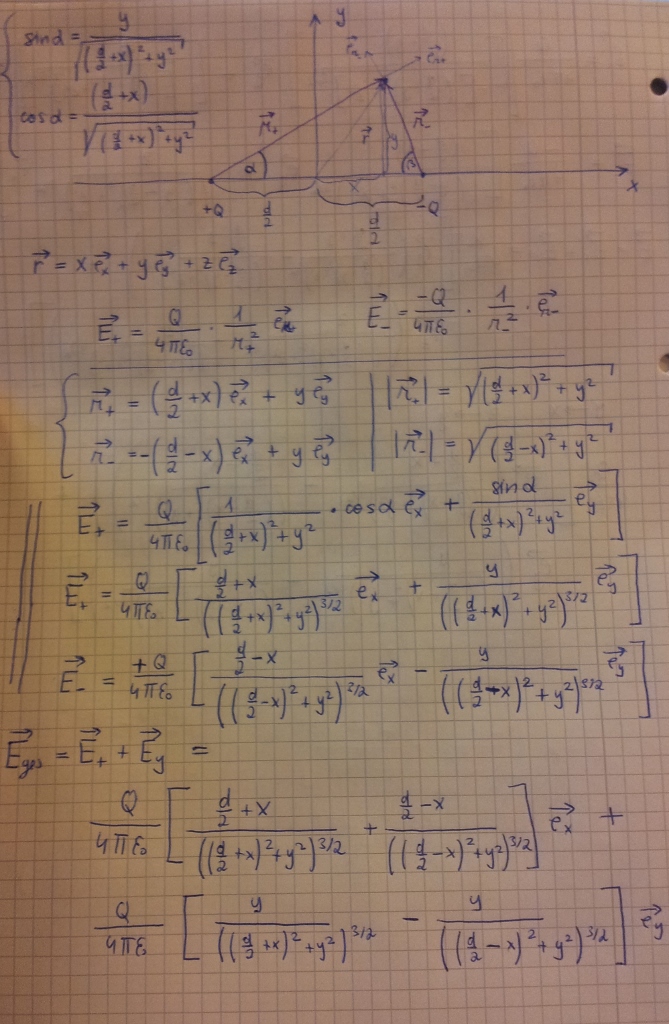 sin α = y / √((d/2 + x)² + y²)
cos α = (d/2 + x) / √((d/2 + x)² + y²)
y
x
r⃗₊ r⃗ y r⃗₋
α x β
+Q d/2 d/2 -Q
r⃗ = x e⃗ₓ + y e⃗ᵧ + z e⃗_z
E⃗₊ = Q/(4πε₀) · 1/r₊² e⃗ᵣ₊ E⃗₋ = -Q/(4πε₀) · 1/r₋² · e⃗ᵣ₋
r⃗₊ = (d/2 + x) e⃗ₓ + y e⃗ᵧ |r⃗₊| = √((d/2 + x)² + y²)
r⃗₋ = -(d/2 - x) e⃗ₓ + y e⃗ᵧ |r⃗₋| = √((d/2 - x)² + y²)
E⃗₊ = Q/(4πε₀) [ 1/((d/2 + x)² + y²) · cos α e⃗ₓ + sin α/((d/2 + x)² + y²) e⃗ᵧ ]
E⃗₊ = Q/(4πε₀) [ (d/2 + x)/((d/2 + x)² + y²)^(3/2) e⃗ₓ + y/((d/2 + x)² + y²)^(3/2) e⃗ᵧ ]
E⃗₋ = +Q/(4πε₀) [ (d/2 - x)/((d/2 - x)² + y²)^(3/2) e⃗ₓ - y/((d/2 - x)² + y²)^(3/2) e⃗ᵧ ]
E⃗ges = E⃗₊ + E⃗ᵧ =
Q/(4πε₀) [ (d/2 + x)/((d/2 + x)² + y²)^(3/2) + (d/2 - x)/((d/2 - x)² + y²)^(3/2) ] e⃗ₓ +
Q/(4πε₀) [ y/((d/2 + x)² + y²)^(3/2) - y/((d/2 - x)² + y²)^(3/2) ] e⃗ᵧ